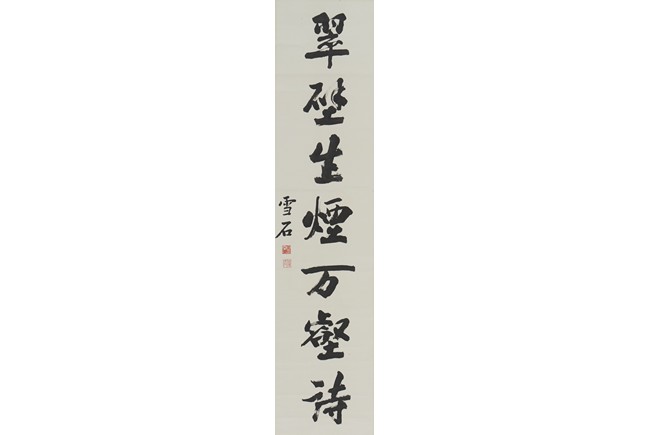 翠壁生煙万壑詩
雪石